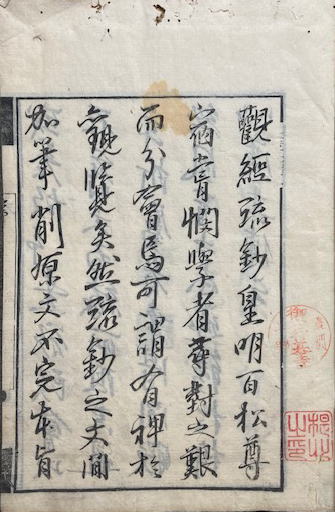 觀經疏鈔皇明百松尊
宿甞憫學者尋對之艱
而分會焉可謂有裨於
觀覽矣然疏鈔之文間
加筆削原文不完本旨